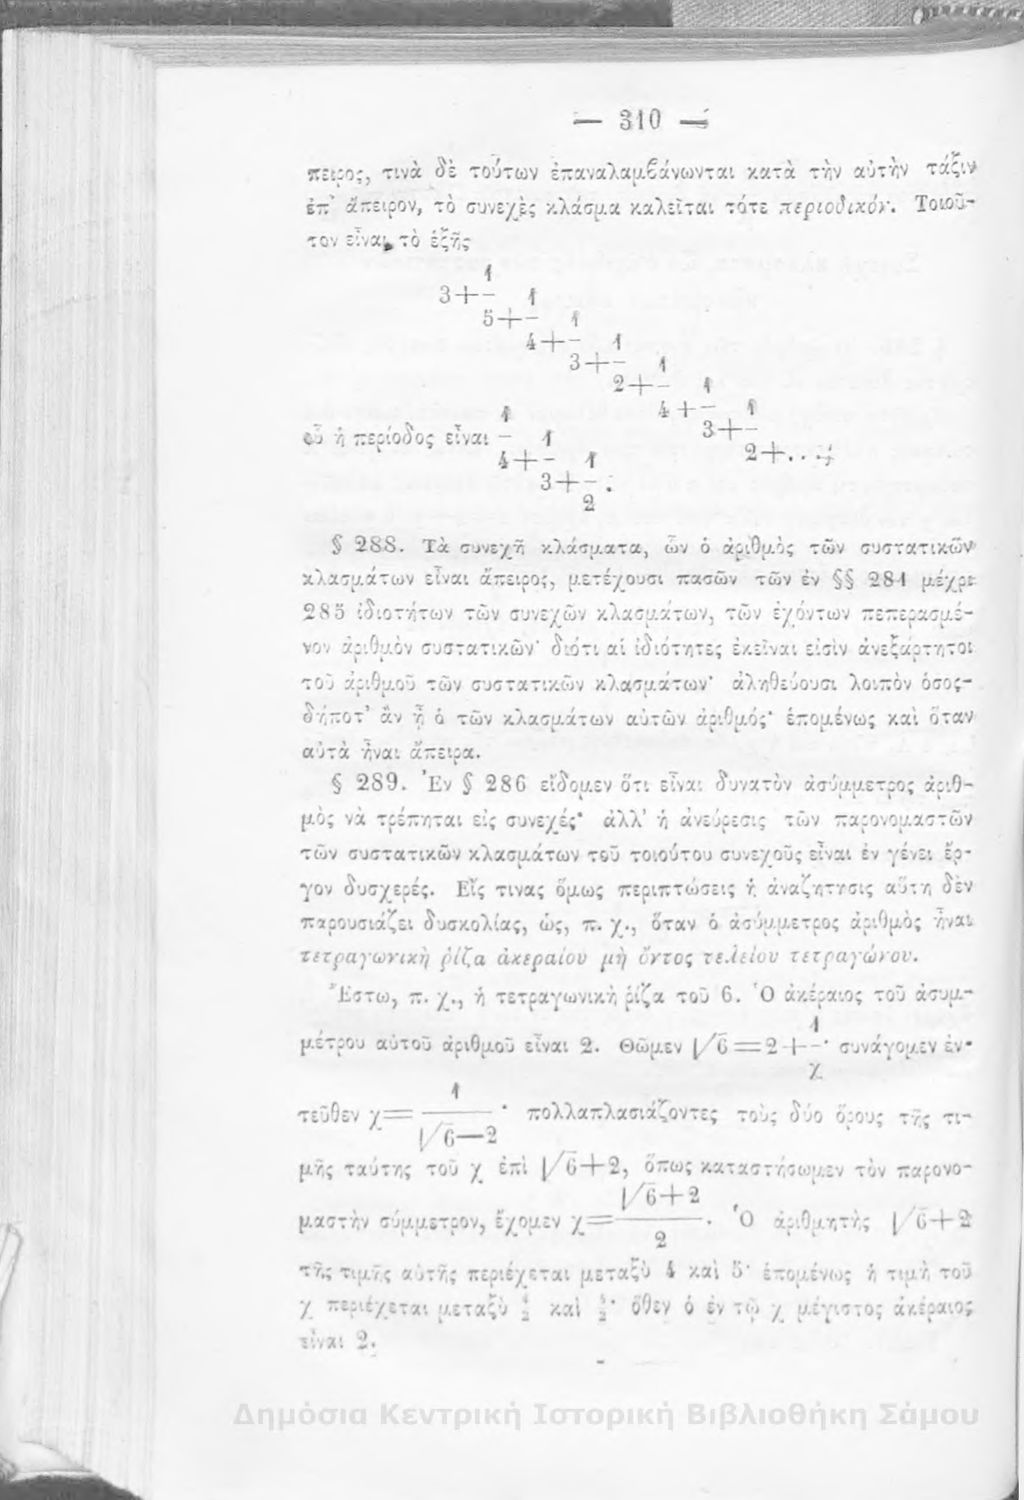 — 310 —
πειρος, τινὰ δὲ τούτων ἐπαναλαμβάνωνται κατὰ τὴν αὐτὴν τάξιν
ἐπ' ἄπειρον, τὸ συνεχὲς κλάσμα καλεῖται τότε περιοδικόν. Τοιοῦ-
τον εἶναι τὸ ἑξῆς
1
3+– 1
5+– 1
4+– 1
3+– 1
2+– 1
4+– 1
3+–
2+...;
οὗ ἡ περίοδος εἶναι 1
– 1
4+– 1
3+–.
2
§ 288. Τὰ συνεχῆ κλάσματα, ὧν ὁ ἀριθμὸς τῶν συστατικῶν
κλασμάτων εἶναι ἄπειρος, μετέχουσι πασῶν τῶν ἐν §§ 281 μέχρι
285 ἰδιοτήτων τῶν συνεχῶν κλασμάτων, τῶν ἐχόντων πεπερασμέ-
νον ἀριθμὸν συστατικῶν· διότι αἱ ἰδιότητες ἐκεῖναι εἰσὶν ἀνεξάρτητοι
τοῦ ἀριθμοῦ τῶν συστατικῶν κλασμάτων· ἀληθεύουσι λοιπὸν ὅσος-
δήποτ' ἂν ᾖ ὁ τῶν κλασμάτων αὐτῶν ἀριθμός· ἑπομένως καὶ ὅταν
αὐτὰ ἦναι ἄπειρα.
§ 289. Ἐν § 286 εἴδομεν ὅτι εἶναι δυνατὸν ἀσύμμετρος ἀριθ-
μὸς νὰ τρέπηται εἰς συνεχές· ἀλλ' ἡ ἀνεύρεσις τῶν παρονομαστῶν
τῶν συστατικῶν κλασμάτων τοῦ τοιούτου συνεχοῦς εἶναι ἐν γένει ἔρ-
γον δυσχερές. Εἴς τινας ὅμως περιπτώσεις ἡ ἀναζήτησις αὕτη δὲν
παρουσιάζει δυσκολίας, ὡς, π. χ., ὅταν ὁ ἀσύμμετρος ἀριθμὸς ἦναι
τετραγωνικὴ ῥίζα ἀκεραίου μὴ ὄντος τελείου τετραγώνου.
Ἔστω, π. χ., ἡ τετραγωνικὴ ῥίζα τοῦ 6. Ὁ ἀκέραιος τοῦ ἀσυμ-
μέτρου αὐτοῦ ἀριθμοῦ εἶναι 2. Θῶμεν √6=2+1/χ· συνάγομεν ἐν-
τεῦθεν χ=1/(√6—2)· πολλαπλασιάζοντες τοὺς δύο ὅρους τῆς τι-
μῆς ταύτης τοῦ χ ἐπὶ √6+2, ὅπως καταστήσωμεν τὸν παρονο-
μαστὴν σύμμετρον, ἔχομεν χ=(√6+2)/2. Ὁ ἀριθμητὴς √6+2
τῆς τιμῆς αὐτῆς περιέχεται μεταξὺ 4 καὶ 5· ἑπομένως ἡ τιμὴ τοῦ
χ περιέχεται μεταξὺ 4/2 καὶ 5/2· ὅθεν ὁ ἐν τῷ χ μέγιστος ἀκέραιος
εἶναι 2.
Δημόσια Κεντρική Ιστορική Βιβλιοθήκη Σάμου